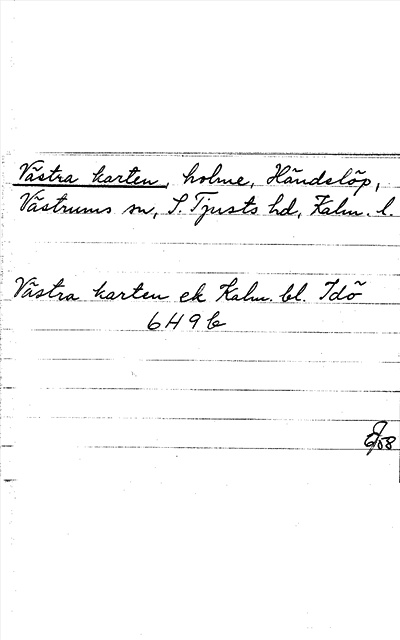 Västra karten, holme, Händelöp,
Västrums sn, S. Tjusts hd, Kalm. l.
Västra karten ek Kalm. bl. Idö
649 b